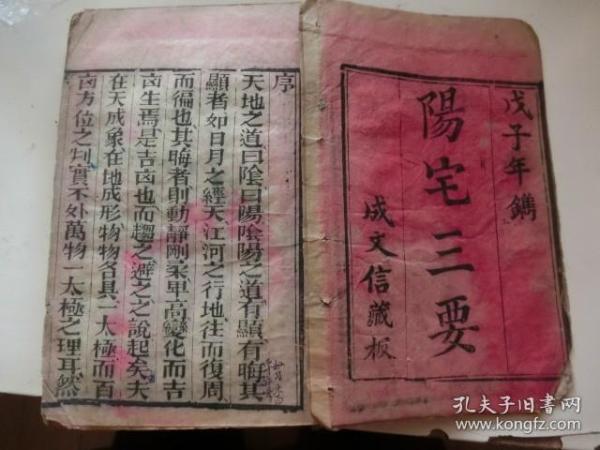 戊子年鐫
陽宅三要
成文信藏板
序
天地之道曰陰曰陽陰陽之道有顯有晦其
顯者如日月之經天江河之行地往而復周
而徧也其晦者則動靜剛柔卑高變化而吉
㐫生焉是吉㐫也而趨之避之之說起矣夫
在天成象在地成形物物各具一太極而吉
㐫方位之判實不外萬物一太極之理耳然
孔夫子旧書网
www.kongfz.com